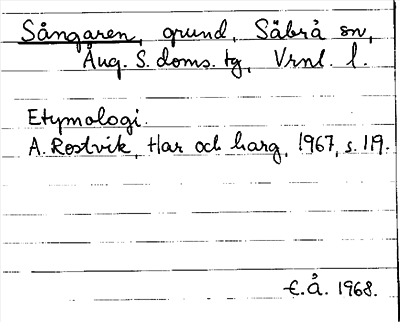 Sångaren, grund, Säbrå sn,
Ång. S. doms. tg, Vrnl. l.
Etymologi.
A. Rostvik, Har och harg, 1967, s. 119.
E.Å. 1968.